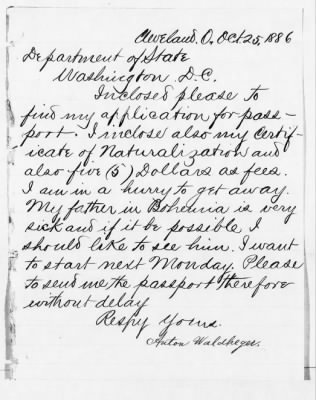 Cleveland, O. Oct 25, 1886
Department of State
Washington D.C.
Inclosed please to
find my application for pass-
port. I inclose also my Certif-
icate of Naturalization and
also five (5) Dollars as fees.
I am in a hurry to get away.
My father in Bohemia is very
sick and if it be possible I
should like to see him. I want
to start next Monday. Please
to send me the passport therefore
without delay
Respy Yours.
Anton Waldheger.